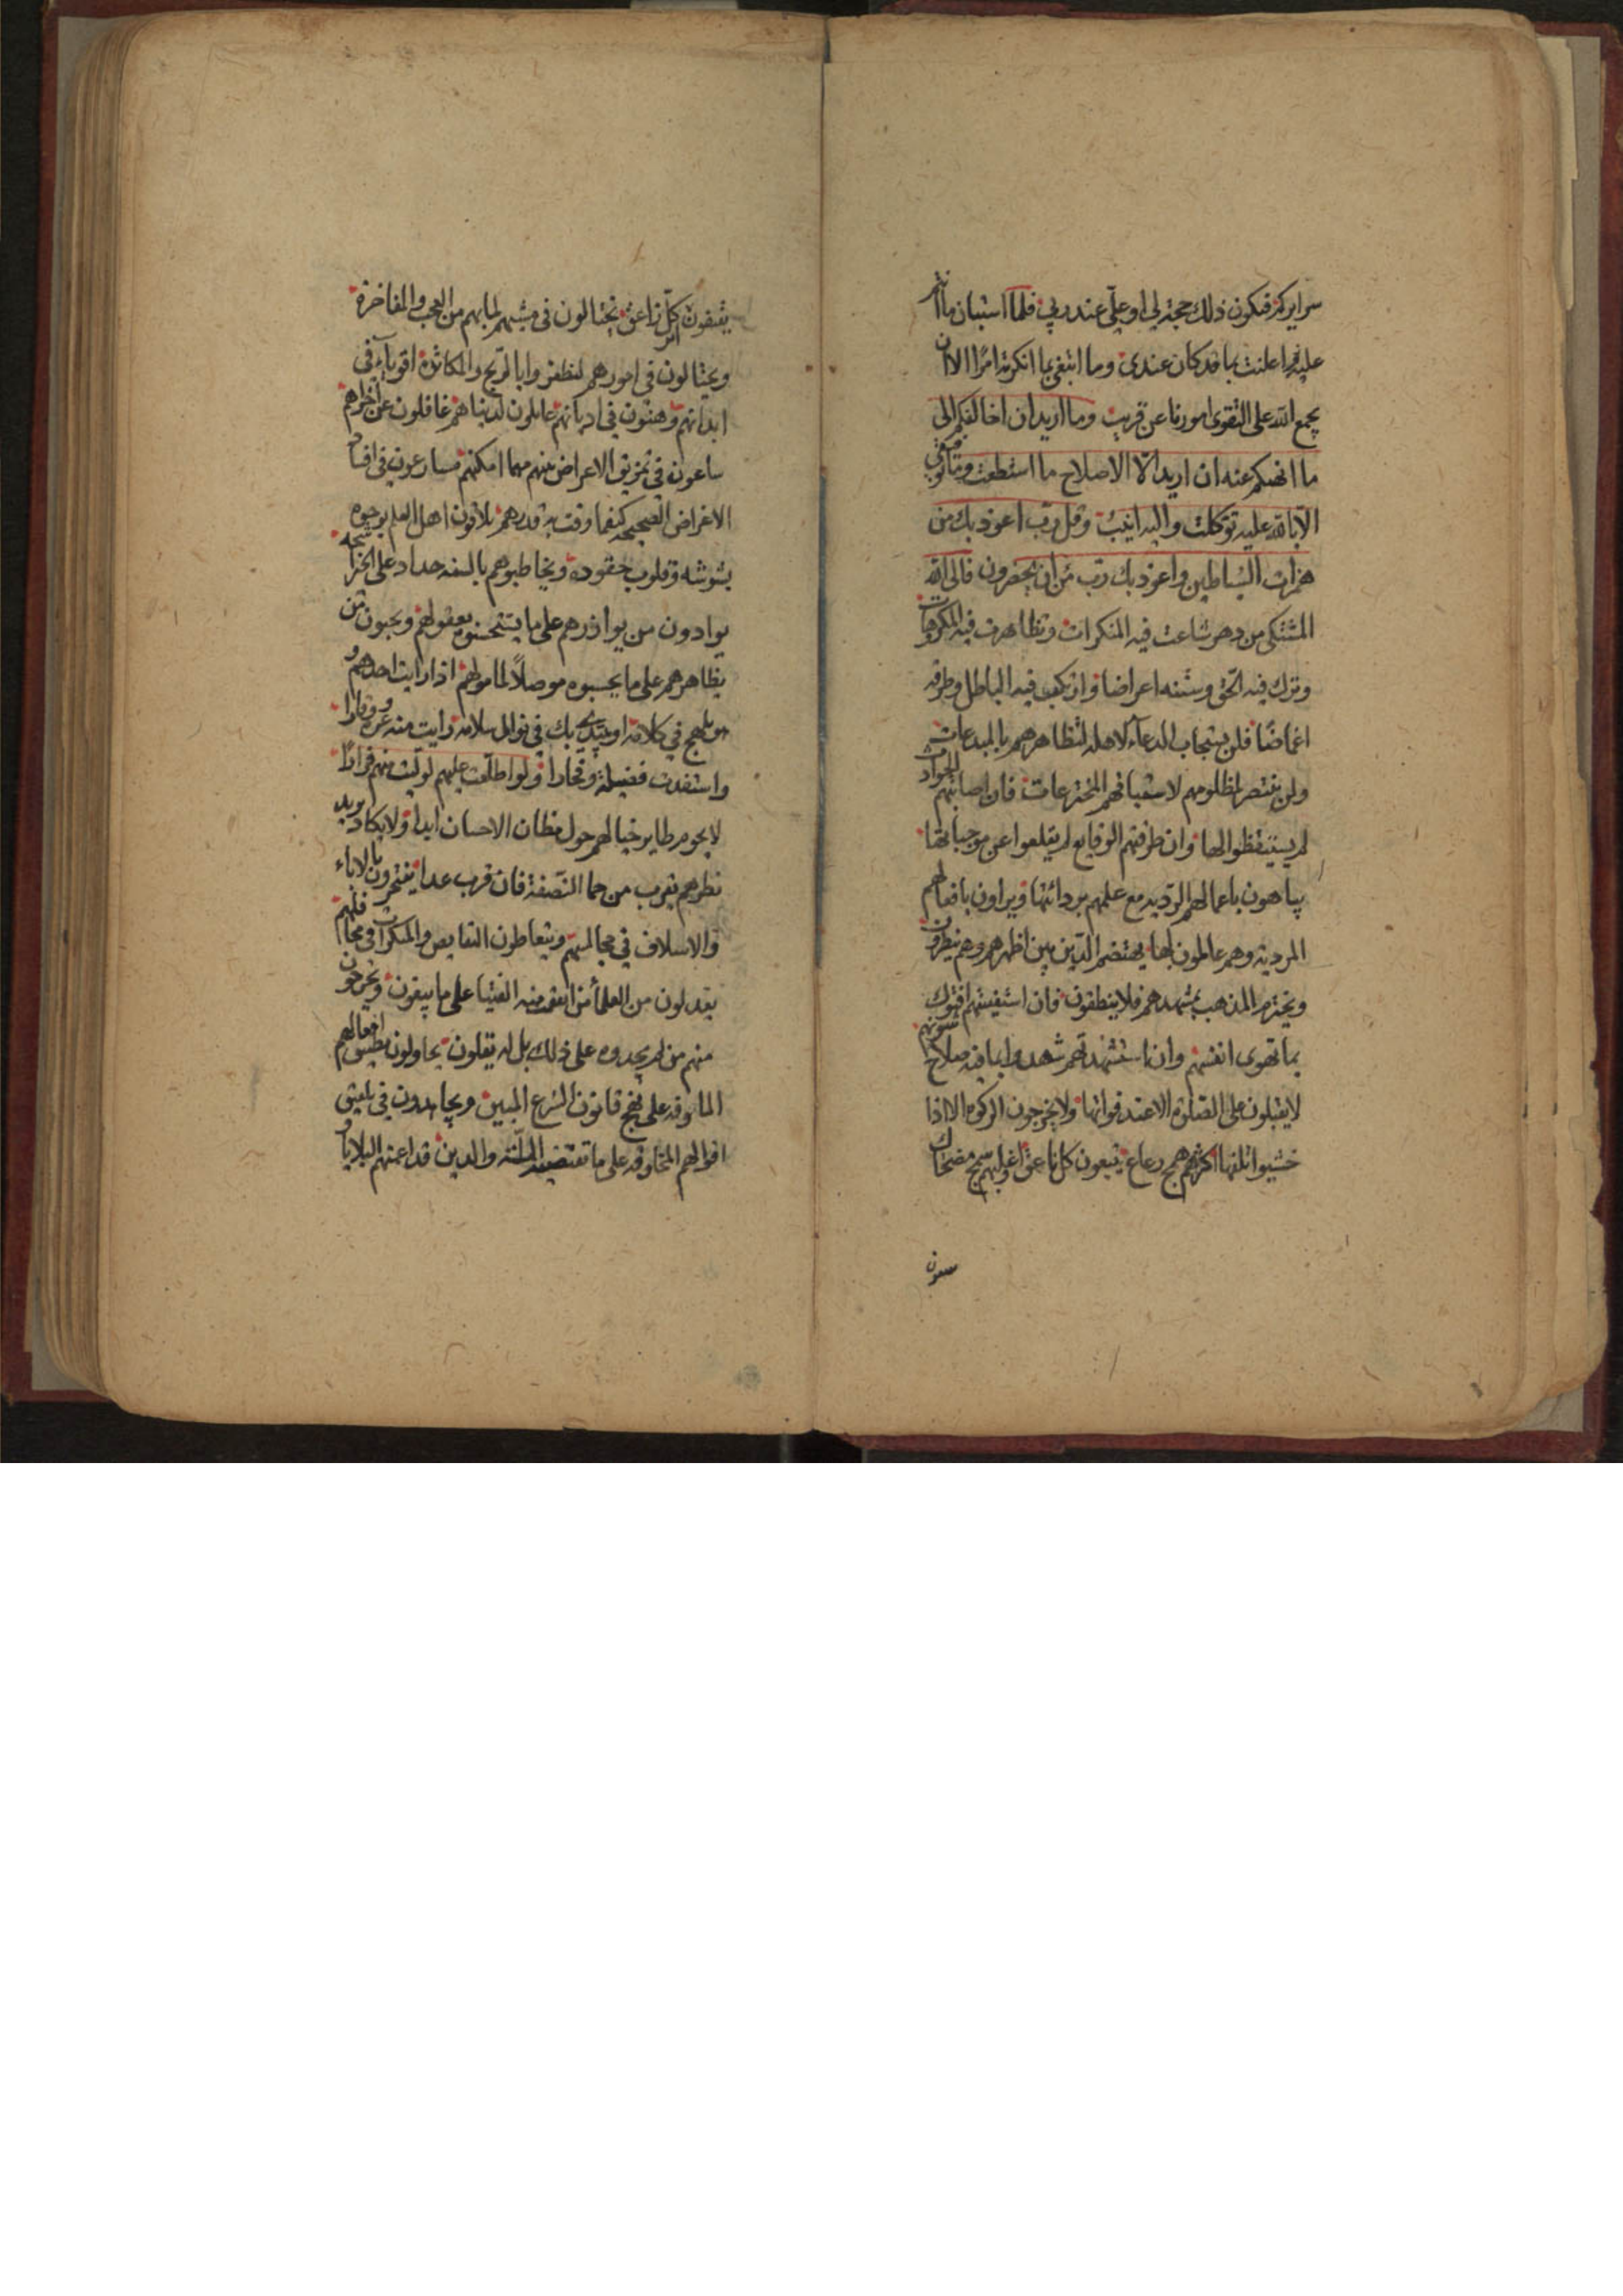 سرايركم فتكون ذلك حجة لي او علي عند ربي فلما استبان ما انتم
عليه اعلنت بما قد كان عندي وما ابتغي بما انكرته امرا الا ان
يجمع الله على التقوى امورنا عن قريب وما اريد ان اخالفكم الى
ما انهيكم عنه ان اريد الا الاصلاح ما استطعت وما توفيقي
الا بالله عليه توكلت واليه انيب وقل رب اعوذ بك من
همزات الشياطين واعوذ بك رب من ان يحضرون فالى الله
المشتكى من دهر شاعت فيه المنكرات وتظاهرت فيه المكروهات
وترك فيه الحق وسننه اعراضا وارتكب فيه الباطل وطرقه
اغماضا فلن يستجاب الدعاء لاهله لتظاهرهم بالمبدعات
ولن ينتصر لمظلومهم لا المخترعات فان اصابتهم الحوادث
لم يستيقظوا لها وان طرقتهم الوقايع لم يقلعوا عن موجباتها
يباهون باعمالهم الرديه مع علمهم بردائتها ويراون بافعالهم
المرديه وهم عالمون بها يهتضم الدين بين اظهرهم وهم ينظرون
ويخترم المذهب بمشهدهم فلا ينطقون فان استفتيتهم افتوك
بما تهوى انفسهم وان استشهدتهم شهدوا بما فيه صلاح شونهم
لا يقبلون على الصلوة الا عند فواتها ولا يخرجون الزكوة الا اذا
خشيوا تلفها اكثرهم همج رعاع يتبعون كل ناعق واغلبهم سمج مضحاك
يثبقون اثر كل زاعق يختالون في مشيهم لما بهم من العجب والمفاخرة
ويحتالون في امورهم ليظفروا بالربح والمكاثرة اقوياء في
ابدانهم وهنون في اديانهم عاملون لدنياهم غافلون عن اخراهم
ساعون في تمزيق الاعراض منهم مهما امكنهم مسارعون في افساد
الاغراض الصحيحه كيفما وقت به قدرهم يلاقون اهل العلم بوجوه
بشوشه وقلوب حقوده ويخاطبوهم بالسنه حداد على الخير اشحه
يوادون من يوازرهم على ما يستحسنوه بعقولهم ويحبون من
يظاهرهم على ما يحسبوه موصلا لمامولهم اذا رايت احدهم و
هو يلهج في كلامه او يبتدي بك في نوال سلامه رايت منه عزه ووقارا
واستفدت فضيلة وفخارا ولو اطلعت عليهم لوليت منهم فرارا
لا يحوم طاير خيالهم حول مظان الاحسان ابدا ولا يكاد بريد
نظرهم يقرب من حما النصفة فان قرب عدا يفتخرون بالاباء
والاسلاف في مجالسهم ويتعاطون النقايص والمنكرات في محافلهم
يعدلون من العلماء من الفتيا على ما يبيغون ويخرجون
منهم من لم يجدوه على ذلك بل له يقلون يحاولون تطبيق افعالهم
الماوفه على نهج قانون الشرع المبين ويجاهدون في تلفيق
اقوالهم على ما تقتضيه الملة والدين قد اعمتهم البلايا و